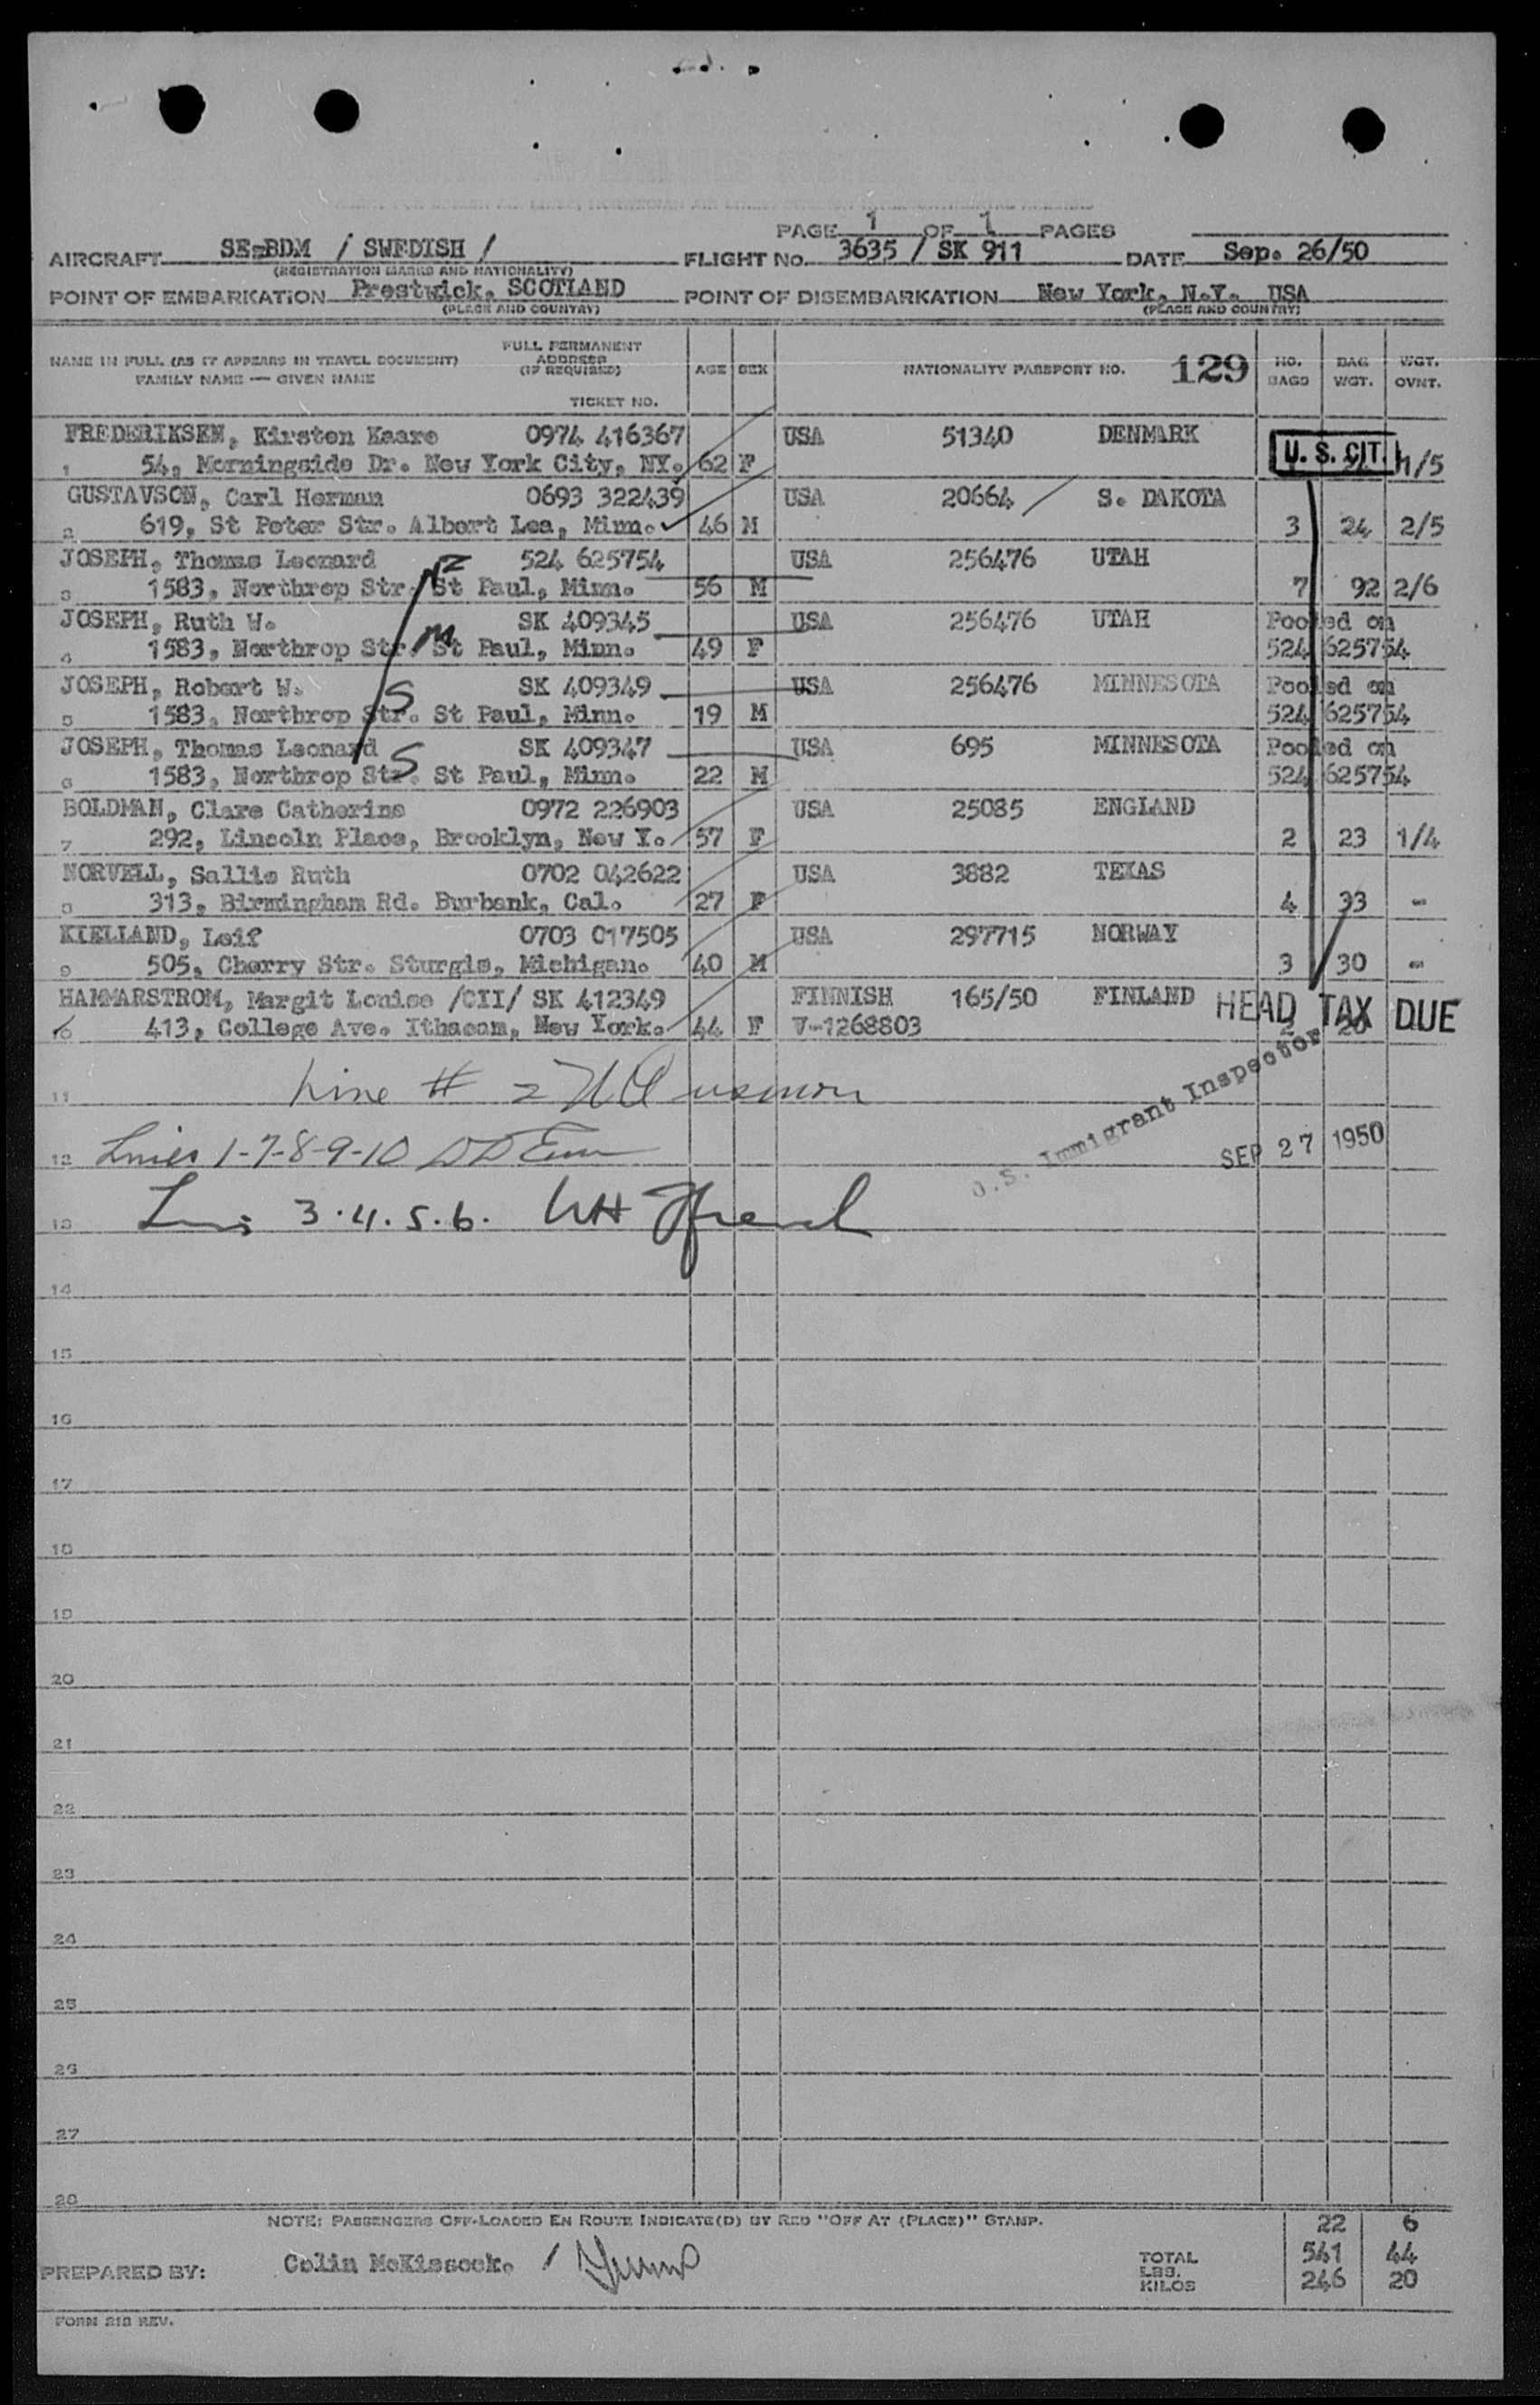 PAGE 1 OF 1 PAGES
AIRCRAFT SE-BDM / SWEDISH / FLIGHT No. 3635 / SK 911 DATE Sep. 26/50
(REGISTRATION MARKS AND NATIONALITY)
POINT OF EMBARKATION Prestwick, SCOTLAND POINT OF DISEMBARKATION New York, N.Y. USA
(PLACE AND COUNTRY) (PLACE AND COUNTRY)
NAME IN FULL (AS IT APPEARS IN TRAVEL DOCUMENT) FULL PERMANENT ADDRESS (IF REQUIRED) AGE SEX NATIONALITY PASSPORT NO. 129 NO. BAGS BAG WGT. WGT. OVNT.
FAMILY NAME — GIVEN NAME
TICKET NO.
FREDERIKSEN, Kirsten Kaare 0974 416367 USA 51340 DENMARK
1 54, Morningside Dr. New York City, NY. 62 F U. S. CIT. 1/5
GUSTAVSON, Carl Herman 0693 322439 USA 20664 S. DAKOTA
2 619, St Peter Str. Albert Lea, Minn. 46 M 3 24 2/5
JOSEPH, Thomas Leonard 524 625754 USA 256476 UTAH
3 1583, Northrop Str. St Paul, Minn. 56 M 7 92 2/6
JOSEPH, Ruth W. SK 409345 USA 256476 UTAH Pooled on
4 1583, Northrop Str. M St Paul, Minn. 49 F 524 625754
JOSEPH, Robert W. S SK 409349 USA 256476 MINNESOTA Pooled on
5 1583, Northrop Str. St Paul, Minn. 19 M 524 625754
JOSEPH, Thomas Leonard S SK 409347 USA 695 MINNESOTA Pooled on
6 1583, Northrop Str. St Paul, Minn. 22 M 524 625754
BOLDMAN, Clare Catherine 0972 226903 USA 25085 ENGLAND
7 292, Lincoln Place, Brooklyn, New Y. 57 F 2 23 1/4
NORVELL, Sallie Ruth 0702 042622 USA 3882 TEXAS
8 313, Birmingham Rd. Burbank, Cal. 27 F 4 33 -
KIELLAND, Leif 0703 017505 USA 297715 NORWAY
9 505, Cherry Str. Sturgis, Michigan. 40 M 3 30 -
HAMMARSTROM, Margit Louise /CII/ SK 412349 FINNISH 165/50 FINLAND HEAD TAX DUE
10 413, College Ave. Ithacam, New York. 44 F V-1268803
11 Line # 2
U.S. Immigrant Inspector
12 Lines 1-7-8-9-10
SEP 27 1950
13 3.4.5.6.
14
15
16
17
18
19
20
21
22
23
24
25
26
27
28
NOTE: PASSENGERS OFF-LOADED EN ROUTE INDICATE(D) BY RED "OFF AT (PLACE)" STAMP. 22 6
PREPARED BY: Colin McKissock. / TOTAL LBS. 541 44
KILOS 246 20
FORM 218 REV.